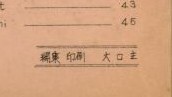 t 43
ni 45
編集 印刷 大口主